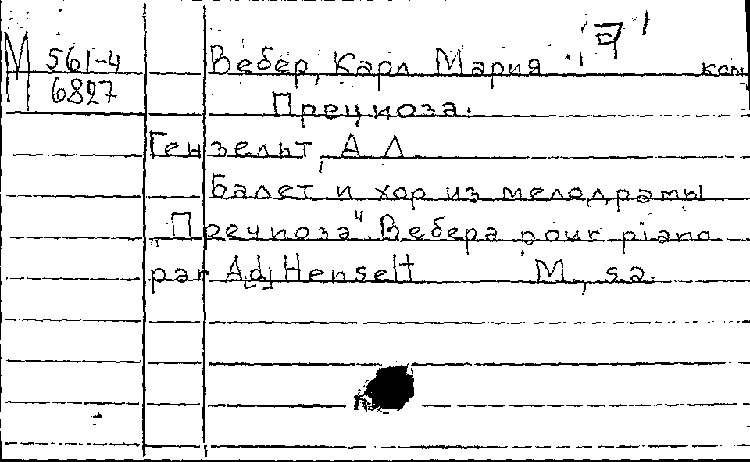 М 561-4 Вебер, Карл Мария ком
6827 Прециоза.
Гензельт, А Л
Балет и хор из мелодрамы
„Прециоза" Вебера pour piano
par Ad. Henselt М., s.a.